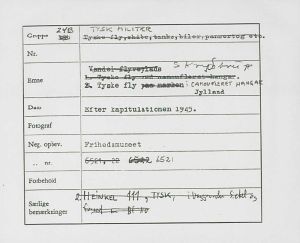 Gruppe ZYB TYSK MILITER
Tyske fly, skibe, tanks, biler, pansertog etc.
Nr.
Vandel flyveplads Skrydstrup
Emne 1. Tyske fly ved camoufleret hangar.
2. Tyske fly paa marken. i CAMOUFLERET HANGAR
Jylland
Dato Efter kapitulationen 1945.
Fotograf
Neg. opbev. Frihedsmuseet
„ nr. 6521
Forbehold
Særlige bemærkninger 2. HEINKEL 111, TYSK,